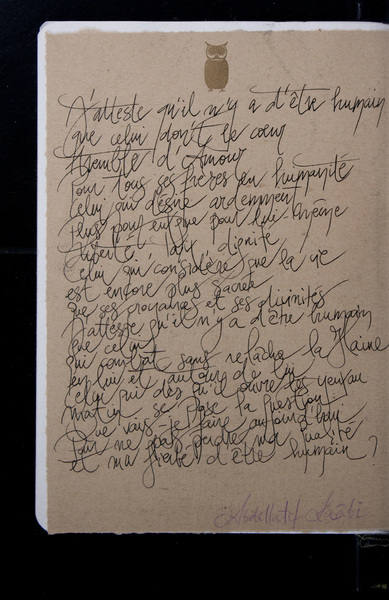 J'atteste qu'il n'y a d'être humain
que celui dont le cœur
tremble d'Amour
Pour tous ses frères en humanité
Celui qui désire ardemment
Plus pour eux que pour lui-même
liberté, paix, dignité
Celui qui considère que la vie
est encore plus sacrée
que ses croyances et ses divinités
J'atteste qu'il n'y a d'être humain
que celui
qui combat sans relâche la Haine
en lui et autour de lui
Celui qui dès qu'il ouvre les yeux au
matin, se pose la question
Que vais-je faire aujourd'hui
Pour ne pas perdre ma qualité
et ma fierté d'être humain ?
Abdellatif Laâbi